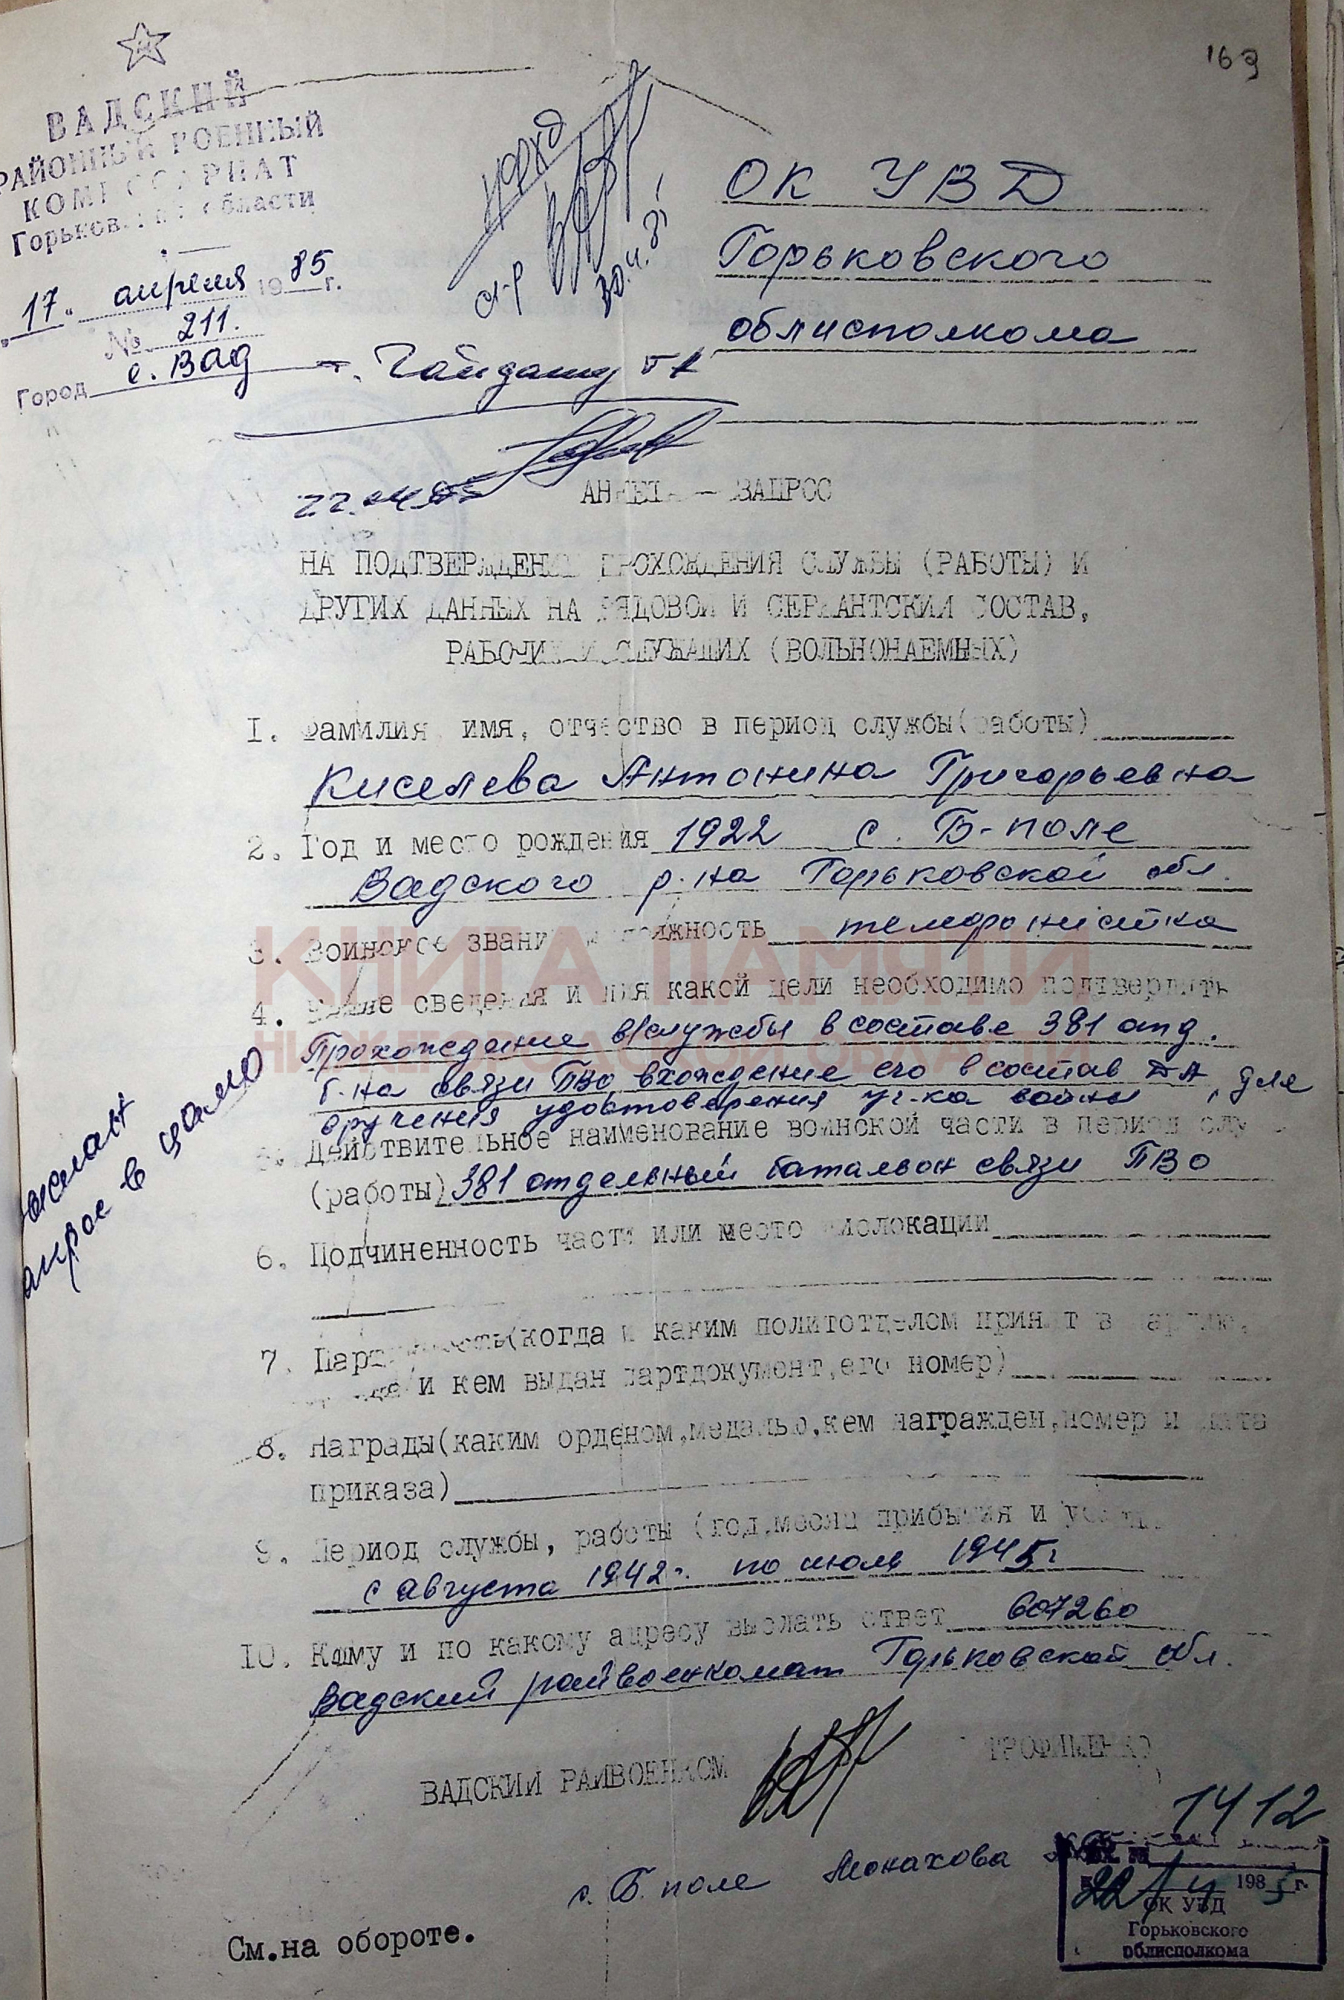 163
ВАДСКИЙ
РАЙОННЫЙ ВОЕННЫЙ
КОМИССАРИАТ
Горьковской области
"17" апреля 1985 г.
№ 211.
Город с. Вад
ОК УВД
Горьковского
облисполкома
т. Гайдашу
30.4.85
22.04.85
АНКЕТА — ЗАПРОС
НА ПОДТВЕРЖДЕНИЕ ПРОХОЖДЕНИЯ СЛУЖБЫ (РАБОТЫ) И
ДРУГИХ ДАННЫХ НА РЯДОВОЙ И СЕРЖАНТСКИЙ СОСТАВ,
РАБОЧИХ И СЛУЖАЩИХ (ВОЛЬНОНАЕМНЫХ)
1. Фамилия, имя, отчество в период службы(работы)
Киселева Антонина Григорьевна
2. Год и место рождения 1922 с. Б-поле
Вадского р-на Горьковской обл.
3. Воинское звание и должность телефонистка
4. Какие сведения и для какой цели необходимо подтвердить
Прохождение в/службы в составе 381 отд.
б-на связи ПВО вхождение его в состав ДА, для
вручения удостоверения уч-ка войны
5. Действительное наименование воинской части в период служ
(работы) 381 отдельный батальон связи ПВО
6. Подчиненность части или место дислокации
7. Партийность(когда и каким политотделом принят в партию,
когда и кем выдан партдокумент,его номер)
8. Награды(каким орденом,медалью,кем награжден,номер и дата
приказа)
9. Период службы, работы (год,месяц прибытия и
с августа 1942 г. по июль 1945 г
10. Кому и по какому адресу выслать ответ 607260
Вадский райвоенкомат Горьковской обл.
ВАДСКИЙ РАЙВОЕНКОМ ТРОФИМЕНКО
с. Б. поле Монахова
См.на обороте.
запрос в ЦАМО
1412
Вх. №
22/IV 1985 г.
ОК УВД
Горьковского
облисполкома
КНИГА ПАМЯТИ
НИЖЕГОРОДСКОЙ ОБЛАСТИ